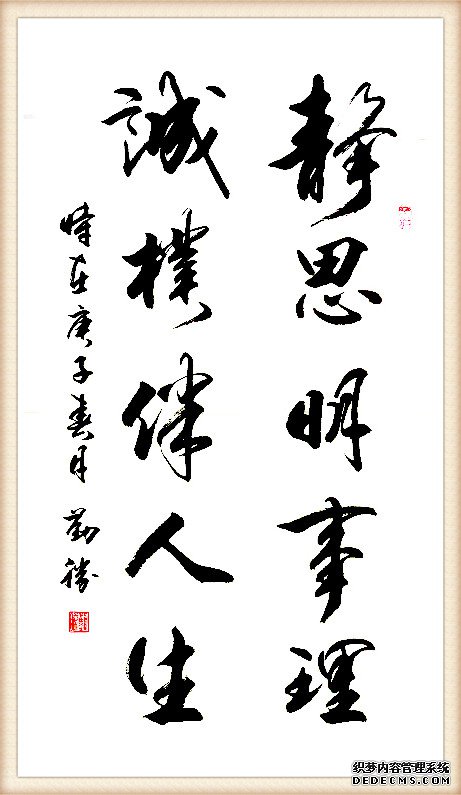 靜思明事理
誠樸伴人生
時在庚子春月 勤勝
织梦内容管理系统
DEDECMS.COM